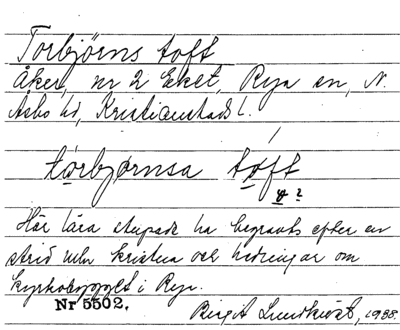 Torbjörns toft
Åker, nr 2 Eket, Rya sn, N.
Åsbo hd, Kristianstads l.
tórbjörnsa tóft
Här lära stupade ha begravts efter en
strid mellan kristna och hedningar om
kyrkobygget i Rya.
Nr 5502.
Birgit Lundkvist, 1938.